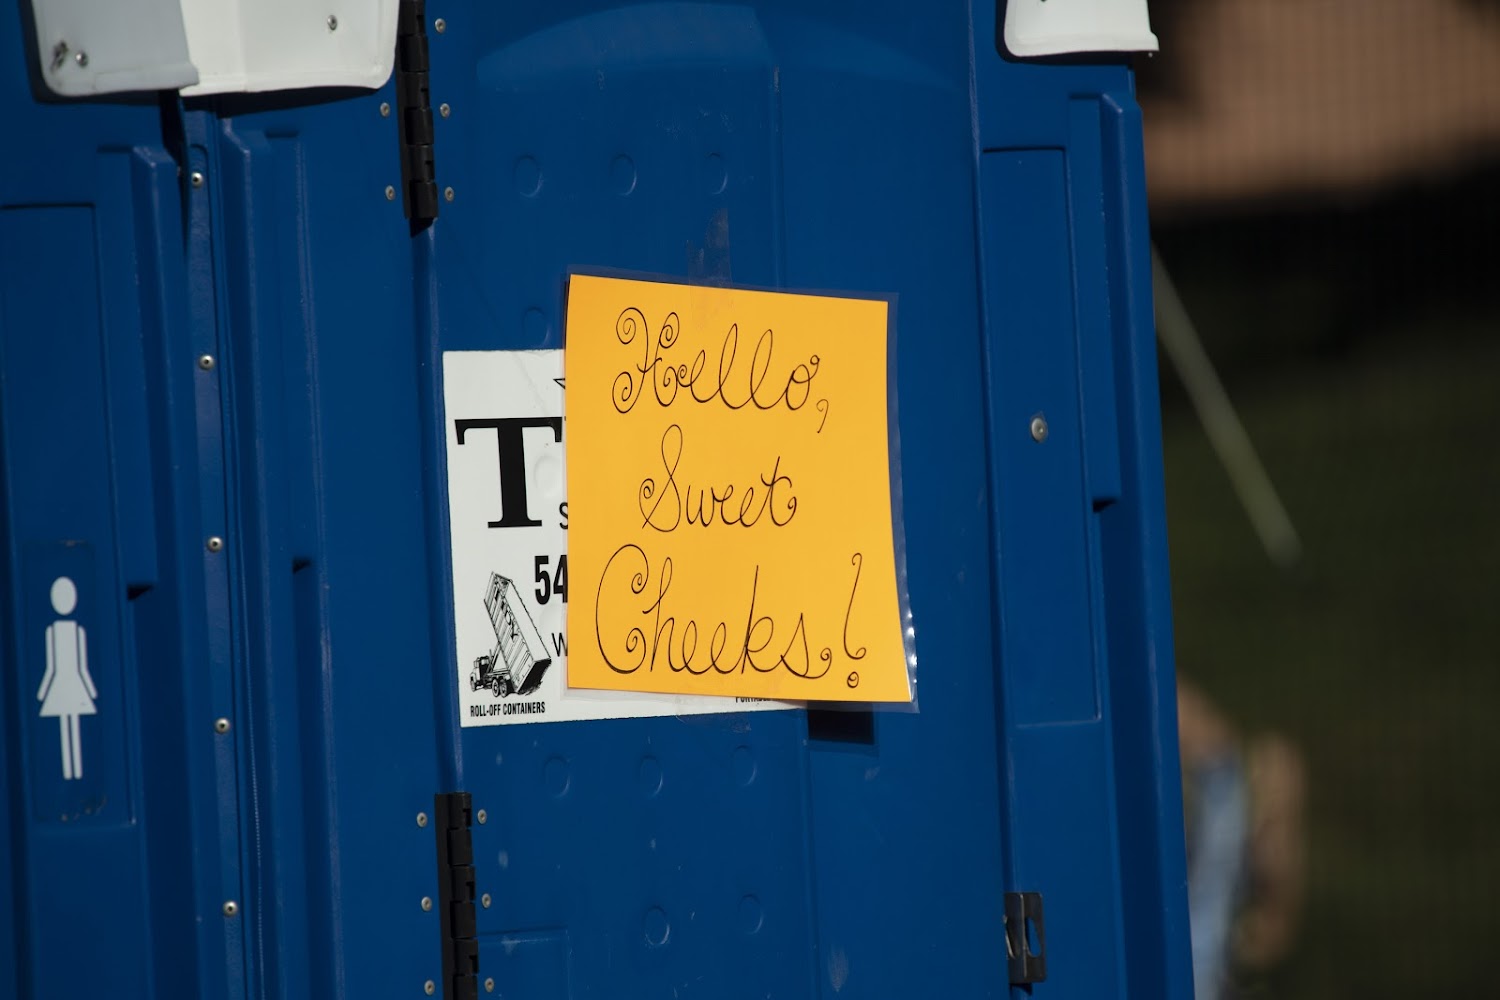 Hello,
Sweet
Cheeks!
T
S
54
W
ROLL-OFF CONTAINERS